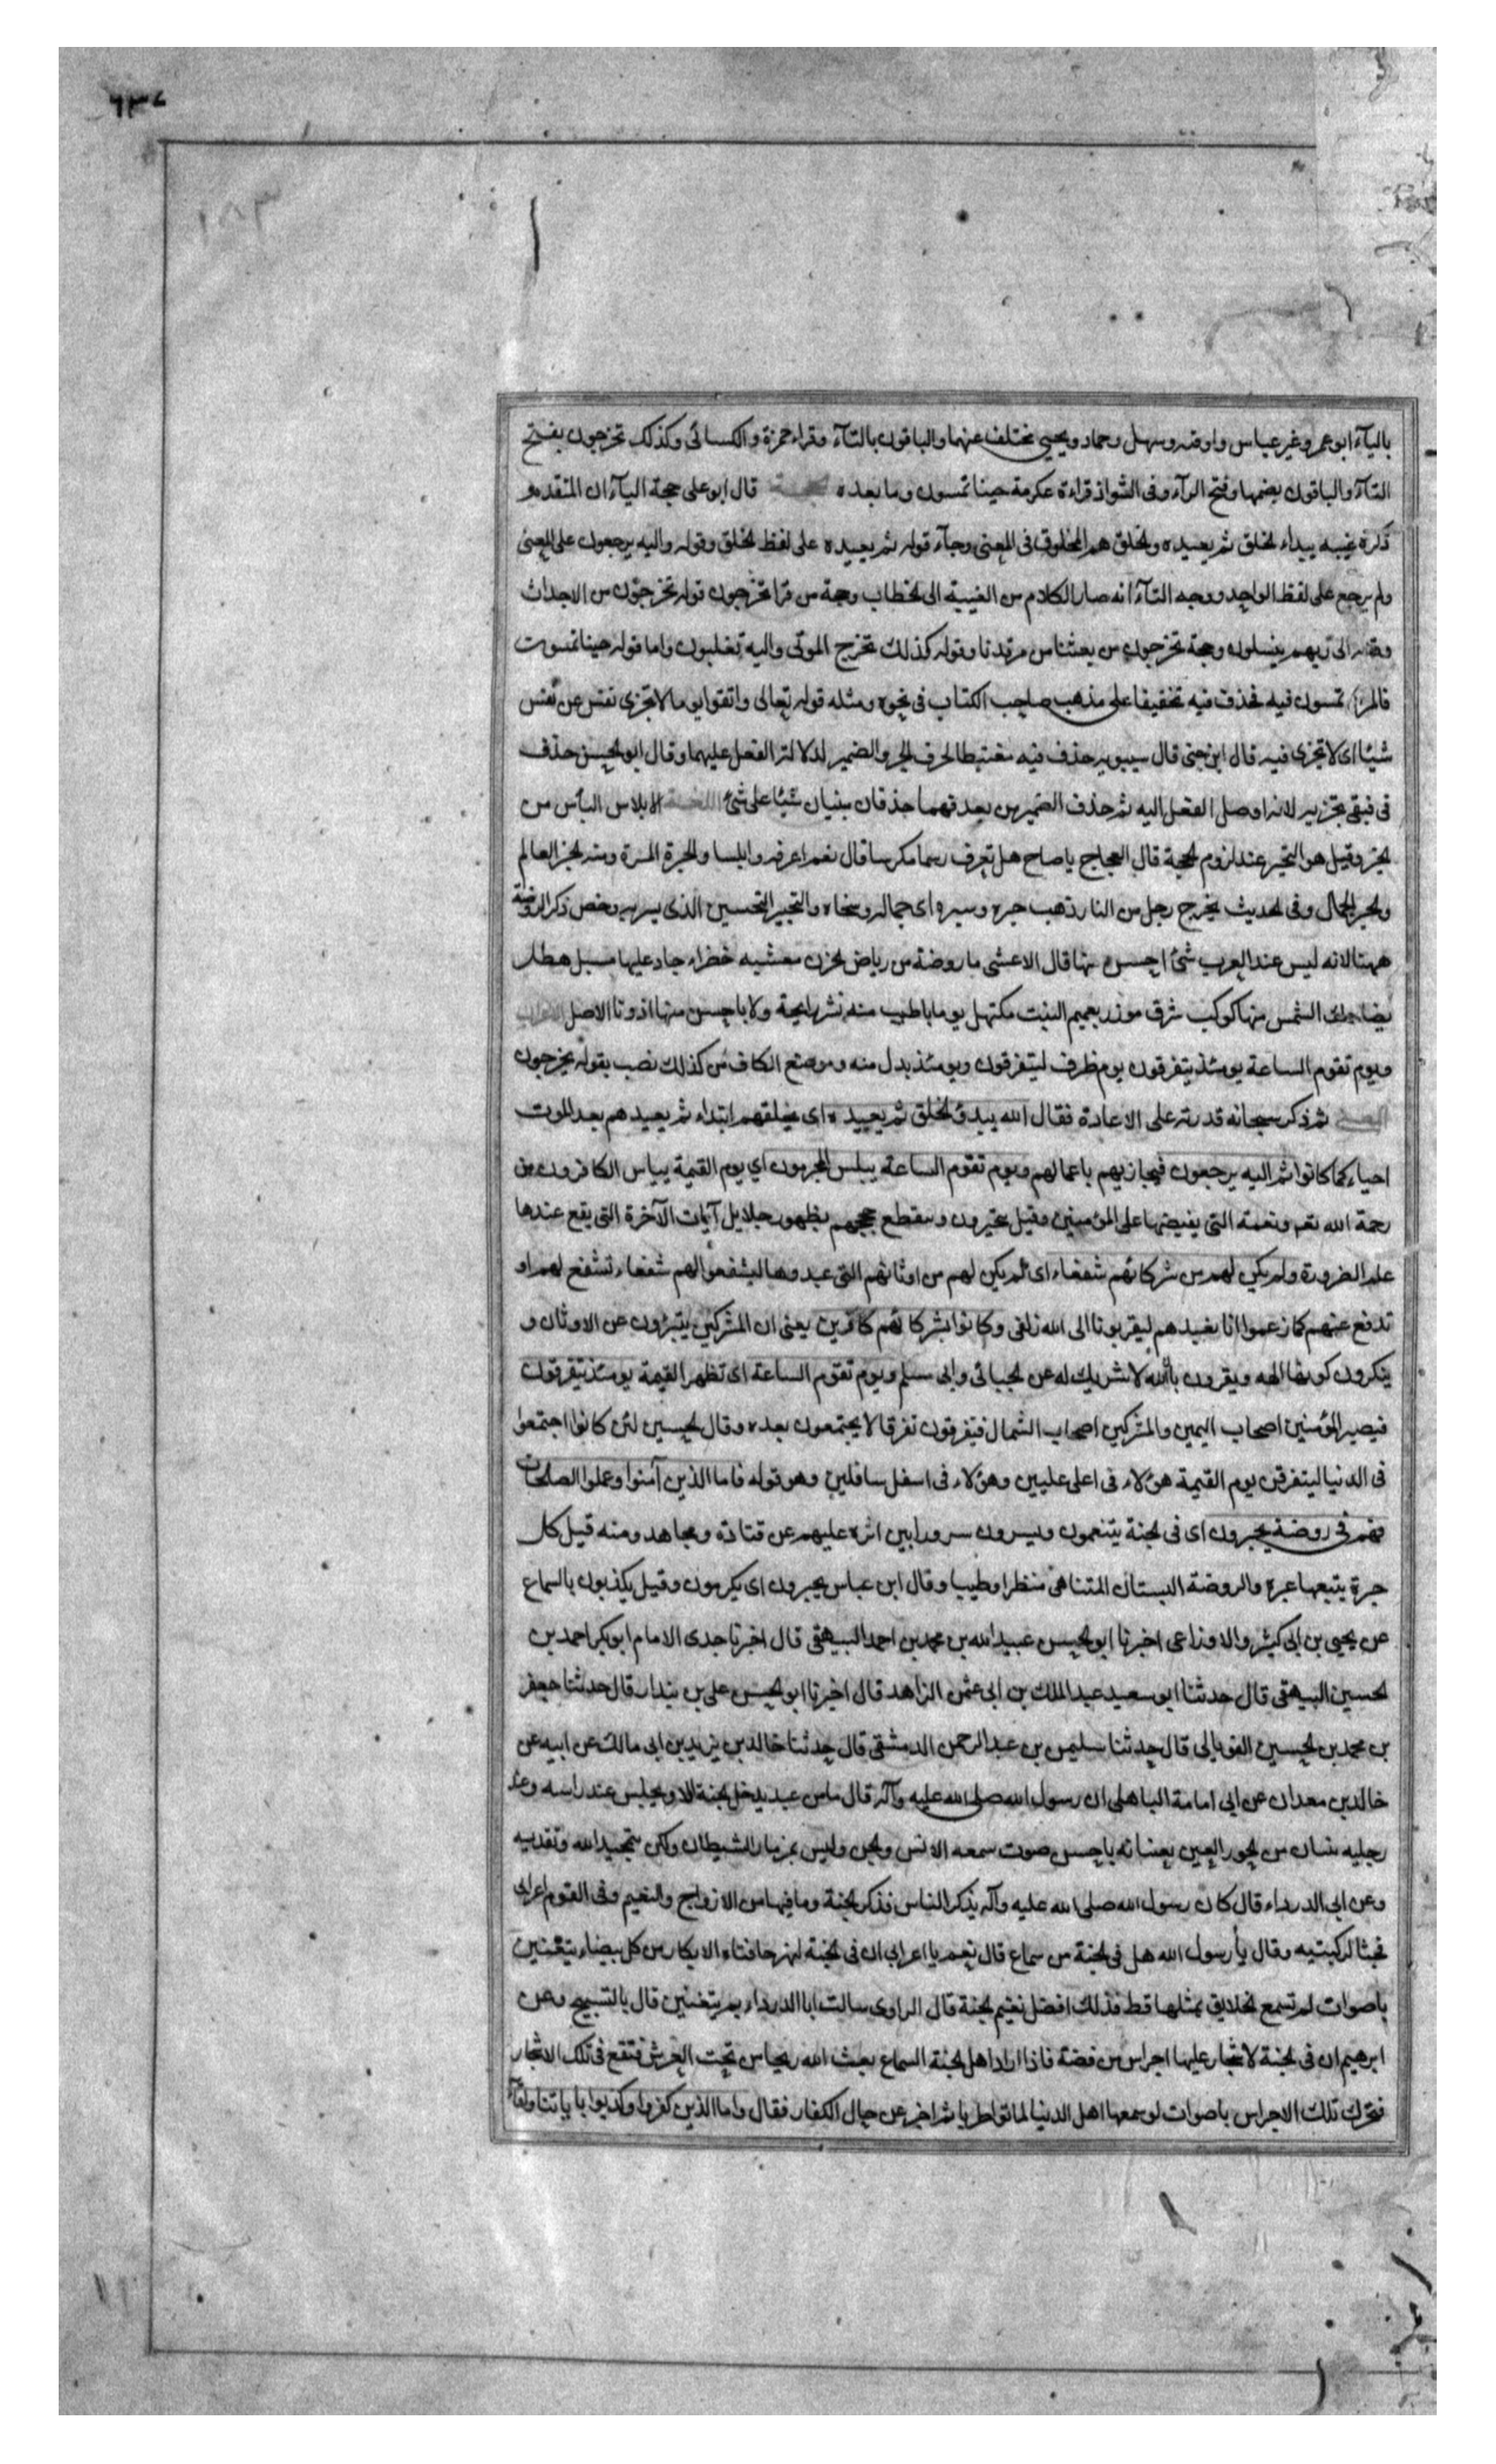 ٦٣٧
بالیآء ابوعمرو غیر عباس واوقیه وسهل وحماد ویحیی مختلف عنهما والباقون بالتآء وقراء حمزة والکسائی وکذلک تخرجون بفتح
التآء والباقون بضمها وفتح الرآء وفی الشواذ قراءة عکرمة حینا تمسون وما بعده قال ابوعلی حجة الیآء ان المتقدم
ذکره غیبه یبداء الخلق ثم یعیده والخلق هم المخلوقون فی المعنی وجآء قوله ثم یعیده علی لفظ الخلق وقوله والیه یرجعون علی المعنی
ولم یرجع علی لفظ الواحد ووجه التآء انه صار الکلام من الغیبة الی الخطاب وحجة من قرا تخرجون قوله یخرجون من الاجداث
وقوله الی ربهم ینسلون وحجة تخرجون من بعثنا من مرقدنا وقوله کذلک نخرج الموتی والیه تقلبون واما قوله حینا تمسون
فالمراد تمسون فیه فحذف فیه تخفیفا علی مذهب صاحب الکتاب فی نحوه ومثله قوله تعالی واتقوا یوما لا تجزی نفس عن نفس
شیئا ای لا تجزی فیه قال ابن جنی قال سیبویه حذف فیه مغتبطا لحرف الجر والضمیر لدلالة الفعل علیهما وقال ابو الحسن حذف
فی فبقی تجزیه لانه اوصل الفعل الیه ثم حذف الضمیر من بعد فهما حذفان بنیان شیئا علی شئ اللغة الابلاس الیأس من
الخیر وقیل هو التحیر عند لزوم الحجة قال العجاج یا صاح هل تعرف رسما مکرسا قال نعم اعرفه وابلسا والحبرة المسرة ومنه الحبر العالم
والحبر الجمال وفی الحدیث یخرج رجل من النار ذهب حبره وسبره ای جماله وسخاه والتحبیر التحسین الذی یسر به وخص ذکر الروضة
ههنا لانه لیس عند العرب شئ احسن منها قال الاعشی ما روضة من ریاض الحزن معشبه خضراء جاد علیها مسبل هطل
یضاحک الشمس منها کوکب شرق موزر بعمیم النبت مکتهل یوما باطیب منه نشر رایحة ولا باحسن منها اذ دنا الاصل الاعراب
ویوم تقوم الساعة یومئذ یتفرقون یوم ظرف لیتفرقون ویومئذ بدل منه وموضع الکاف من کذلک نصب بقوله یخرجون
المعنی ثم ذکر سبحانه قدرته علی الاعادة فقال الله یبدؤ الخلق ثم یعیده ای یخلقهم ابتداء ثم یعیدهم بعد الموت
احیاء کما کانوا ثم الیه یرجعون فیجازیهم باعمالهم ویوم تقوم الساعة یبلس المجرمون ای یوم القیمة ییاس الکافرون من
رحمة الله تعم ونعمه التی یفیضها علی المؤمنین وقیل یتحیرون وینقطع حججهم بظهور جلایل آیات الآخرة التی یقع عندها
علم الضرورة ولم یکن لهم من شرکائهم شفعاء ای لم یکن لهم من اوثانهم التی عبدوها لیشفعوا لهم شفعاء تشفع لهم او
تدفع عنهم کما زعموا انا نعبدهم لیقربونا الی الله زلفی وکانوا بشرکائهم کافرین یعنی ان المشرکین یتبرؤن عن الاوثان و
ینکرون کونها الهه ویقرون بالله لا شریک له عن الجبائی وابی مسلم ویوم تقوم الساعة ای تظهر القیمة یومئذ یتفرقون
فیصیر المؤمنین اصحاب الیمین والمشرکین اصحاب الشمال فیتفرقون تفرقا لا یجتمعون بعده وقال الحسین لئن کانوا اجتمعوا
فی الدنیا لیتفرقن یوم القیمة هؤلاء فی اعلی علیین وهؤلاء فی اسفل سافلین وهو قوله فاما الذین آمنوا وعملوا الصلحات
فهم فی روضة یحبرون ای فی الجنة یتنعمون ویسرون سرورا یبین اثره علیهم عن قتادة ومجاهد ومنه قیل کل
حبرة یتبعها عبره والروضة البستان المتناهی منظرا وطیبا وقال ابن عباس یحبرون ای یکرمون وقیل یلذبون بالسماع
عن یحیی بن ابی کثیر والاوزاعی اخبرنا ابوالحسن عبیدالله بن محمد بن احمد البیهقی قال اخبرنا جدی الامام ابوبکر احمد بن
الحسین البیهقی قال حدثنا ابو سعید عبدالملک بن ابی عثمن الزاهد قال اخبرنا ابوالحسن علی بن بندار قال حدثنا جعفر
بن محمد بن الحسین الفریابی قال حدثنا سلیمن بن عبدالرحمن الدمشقی قال حدثنا خالد بن یزید بن ابی مالک عن ابیه عن
خالد بن معدان عن ابی امامة الباهلی ان رسول الله صلی الله علیه وآله قال ما من عبد یدخل الجنة الا ویجلس عند راسه وعند
رجلیه ثنتان من الحور العین یعنیانه باحسن صوت سمعه الانس والجن ولیس بمزمار الشیطان ولکن بتمجید الله وتقدیسه
وعن ابی الدرداء قال کان رسول الله صلی الله علیه وآله یذکر الناس فذکر الجنة وما فیها من الازواج والنعیم وفی القوم اعرابی
فجثا لرکبتیه وقال یا رسول الله هل فی الجنة من سماع قال نعم یا اعرابی ان فی الجنة لنهر حافتاه الابکار من کل بیضاء یتغنین
باصوات لم تسمع الخلایق بمثلها قط فذلک افضل نعیم الجنة قال الراوی سالت ابا الدرداء بم یتغنین قال بالتسبیح وعن
ابرهیم ان فی الجنة لاشجار علیها اجراس من فضة فاذا اراد اهل الجنة السماع بعث الله ریحا من تحت العرش فتقع فی تلک الاشجار
فتحرک تلک الاجراس باصوات لو سمعها اهل الدنیا لماتوا طربا ثم اخبر عن حال الکفار فقال واما الذین کفروا وکذبوا بایاتنا ولقآء